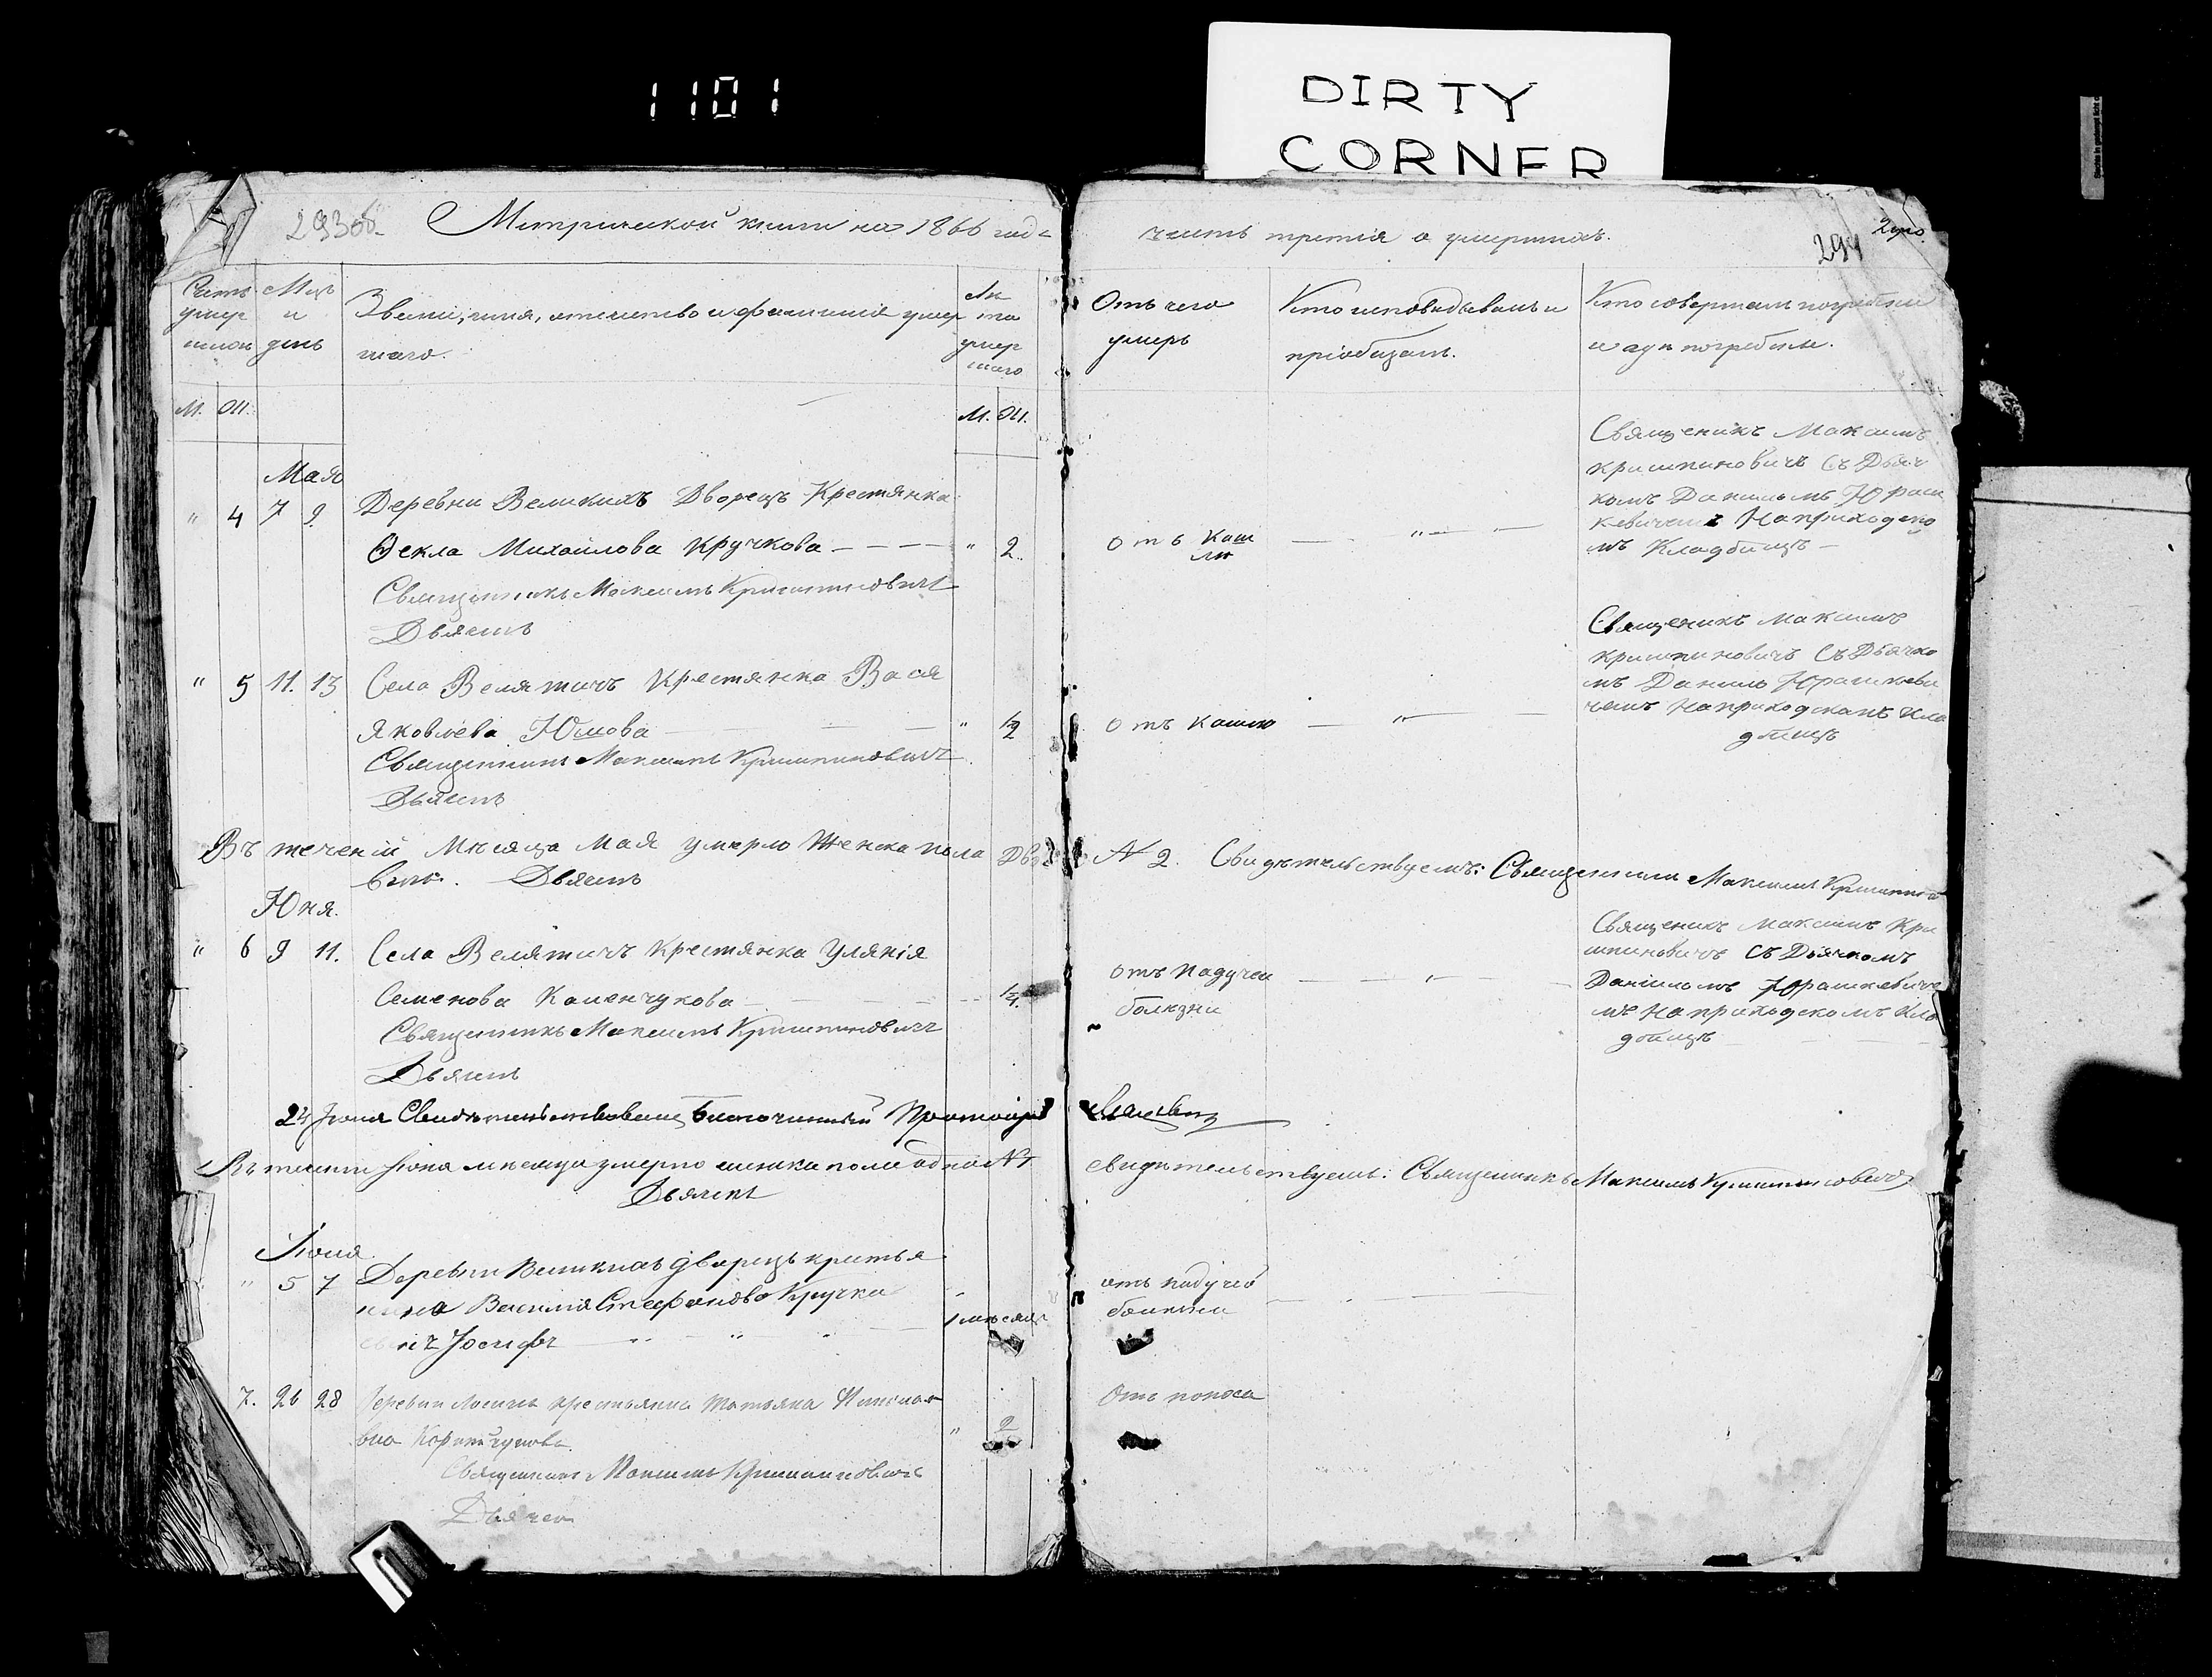 1101
DIRTY
CORNER
293об.
Метрической книги на 1866 годъ
часть третія о умершихъ.
294
Счетъ умер шихъ
Мцъ и день
Званіе, имя, отчество и фамилія умер
шаго.
Лѣ та умер шаго
Отъ чего
умеръ
Кто исповѣдывалъ и
пріобщалъ.
Кто совершалъ погребеніе
и гдѣ погребены.
М. Ж.
М. Ж.
Мая
" 4 7 9 Деревни Великихъ Дворецъ Крестянка
Ѳекла Михайлова Кручкова " 2
Священникъ Максимъ Кришпиновичъ
Дьячекъ
Отъ Каш
лю
Священикъ Максимъ
кришпиновичъ Съ Дьяч
комъ Даниломъ Юраш
кевичемъ На приходско
мъ Кладбищѣ
" 5 11. 13 Села Велятичъ Крестянка Вася
Яковлева Юшова " 1/2
Священникъ Максимъ Кришпиновичъ
Дьячекъ
Отъ Кашлю
Священикъ Максимъ
кришпиновичъ Съ Дьячко
мъ Данило Юрашкеви
чемъ На приходскамъ Кла
дбищѣ
Въ теченій Мѣсяца Мая умерло Женска пола Двѣ
Дьячекъ
№ 2. Свидѣтельствуемъ: Священникъ Максимъ Кришпинов
Юня.
" 6 9 11. Села Велятичъ Крестянка Улянія
Семенова Каменчукова 1/4
Священникъ Максимъ Кришпиновичъ
Дьячекъ
Отъ Падучей
болѣзни
Священикъ Максимъ Кри
шпиновичъ Съ Дьячкомъ
Даніиломъ Юрашкевиче
мъ На приходскомъ Кла
дбищѣ
24 Іюня Свидѣтельствовалъ Благочинный Протоіерей
Въ теченіи Іюня мѣсяца умерло женска пола одна №1
Дьячекъ
свидѣтельствуемъ: Священникъ Максимъ Кришпиновичъ
Іюля
" 5 7 Деревни Великихъ дворецъ крестья
нина Василія Стефанова Кручка
сынъ Іосифъ
1 мѣсяцъ
отъ падучей
болѣзни
7. 26 28 Деревни Лосичъ крестьянка Татьяна
" 2
Отъ поноса
Священникъ Максимъ Кришпиновичъ
Дьячекъ